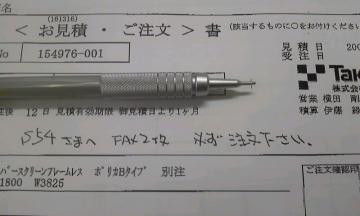 名
(161316)
< お見積・ご注文 > 書
(該当するものに〇をお付けください
No 154976-001
見積日 200
受注日
Tak
株式会
営業 横田 青
積算 伊藤 縁
後 12 日 見積有効期限 御見積日より1ヶ月
S54さまへ FAX2枚 必ず注文下さい。
バースクリーンフレームレス ポリカBタイプ 別注
1800 W3825
ご注文確認用